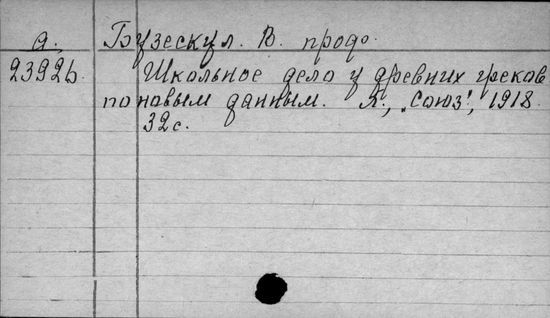 а. Бузескул. В. проф.
23926. Школьное дело у древних греков
по новым данным. Х., „Союз", 1918.
32 с.